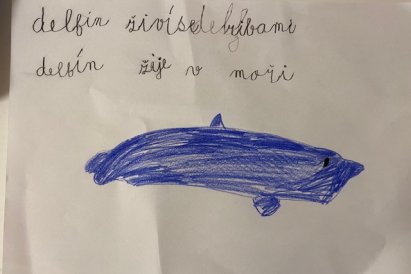 delfín živíse rybami
delfín žije v moři